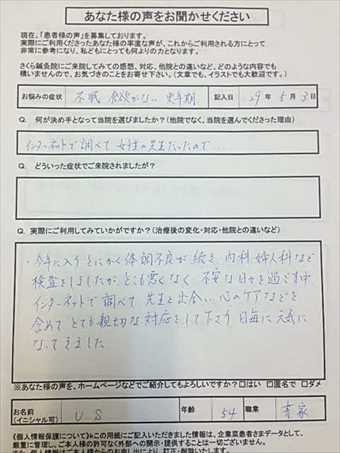 あなた様の声をお聞かせください
現在、「患者様の声」を募集しております。
実際にご利用くださったあなた様の率直な声が、これからご利用される方にとって
非常に参考になり、私どもにとって何よりの力となります。
さくら鍼灸院にご来院してみての感想、対応、他院との違いなど、どのような内容でも
構いませんので、お気づきのことをお寄せ下さい。(文章でも、イラストでも大歓迎です。)
お悩みの症状 不眠 食欲がない 更年期 記入日 29年 5月 3日
Q. 何が決め手となって当院を選びましたか?(他院でなく、当院を選んでくださった理由)
インターネットで調べて 女性の先生だったので...
Q. どういった症状でご来院されましたか?
Q. 実際にご利用してみていかがですか?(治療後の変化・対応・他院との違いなど)
・今年に入りとにかく体調不良が続き、内科 婦人科など
検査をしましたが、どこも悪くなく 不安な日々を過ごす中
インターネットで調べて 先生と出会い、心のケアなどを
含めて とても親切な対応をして下さり 日毎に元気に
なってきました
※あなた様の声を、ホームページなどでご紹介してもよろしいですか?□はい □匿名で □ダメ
お名前 (イニシャル可) U S 年齢 54 職業
《個人情報保護について》※この用紙にご記入いただきました情報は、企業匿患者さまデータとして、
厳重に管理し、ご本人様の許可なく外部への開示・提供することは一切ございません。